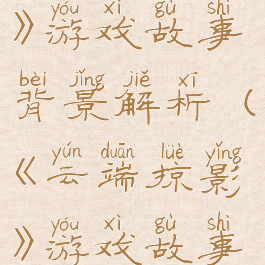 yóu xì gù shi
》游戏故事
bèi jǐng jiě xī
背景解析（
yún duān lüè yǐng
《云端掠影
yóu xì gù shi
》游戏故事